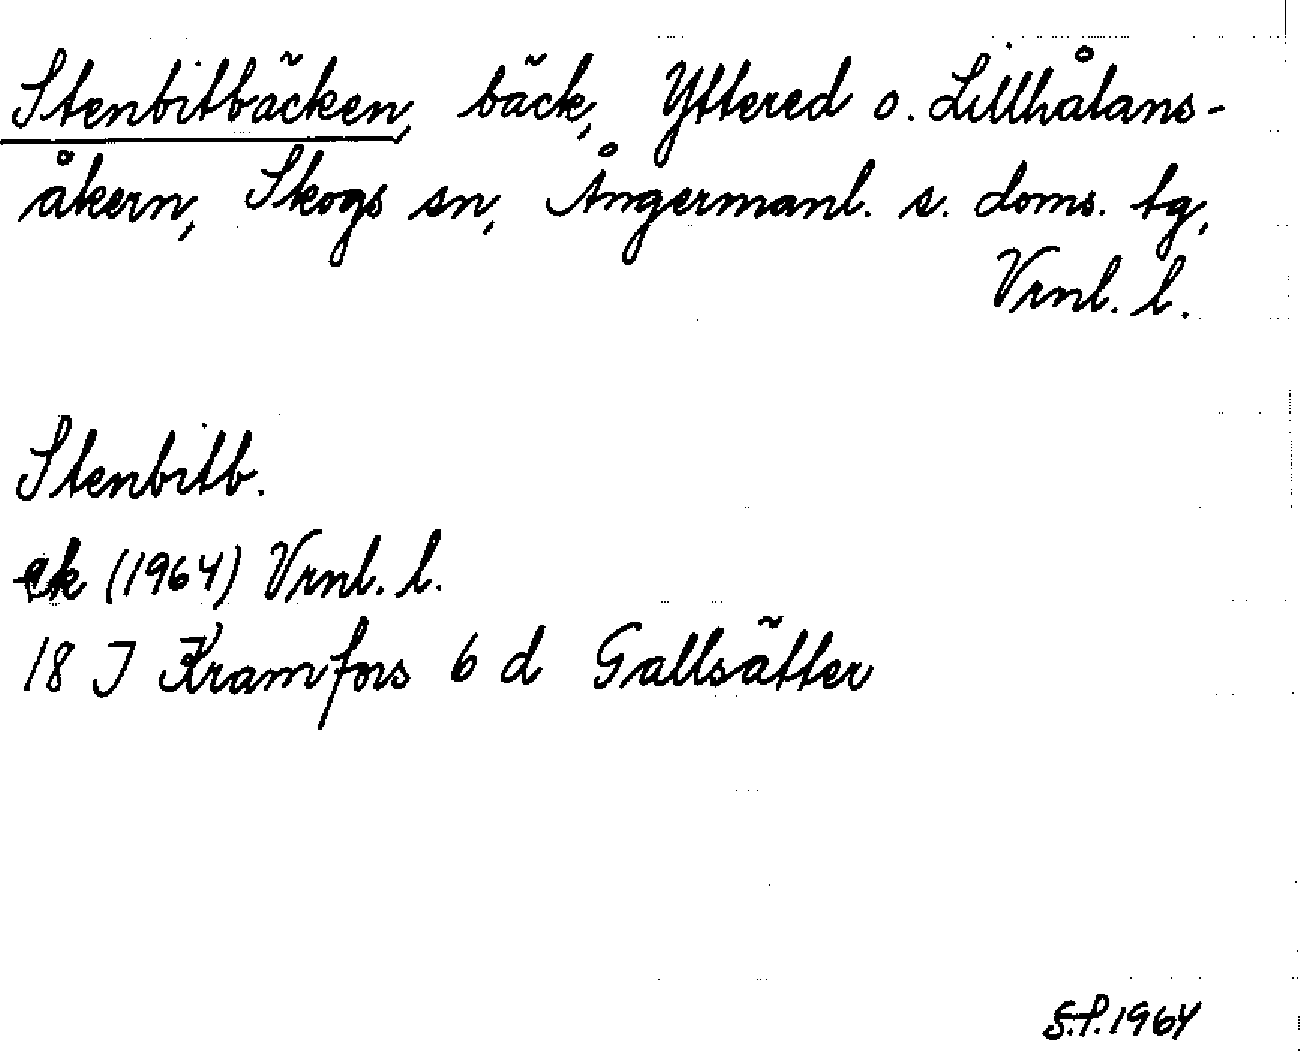 Stenbitbäcken, bäck, Yttered o. Lillhålans-
åkern, Skogs sn, Ångermanl. s. doms. tg,
Vrnl. l.
Stenbitb.
ek (1964) Vrnl. l.
18 J Kramfors 6 d Gallsätter
S.P. 1964